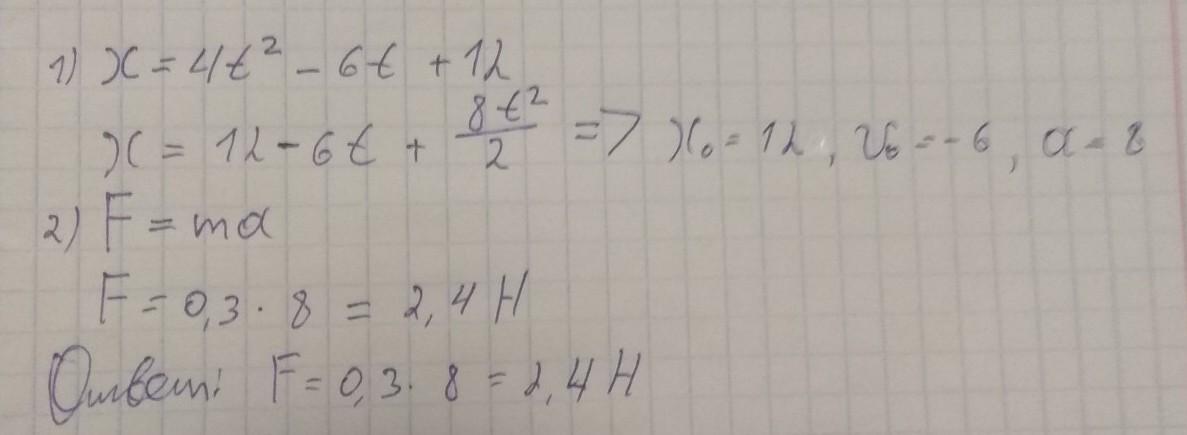 1) x = 4t² - 6t + 12
x = 12 - 6t + 8t²/2 => x₀ = 12, v₀ = -6, a = 8
2) F = ma
F = 0,3 · 8 = 2,4 Н
Ответ: F = 0,3 · 8 = 2,4 Н